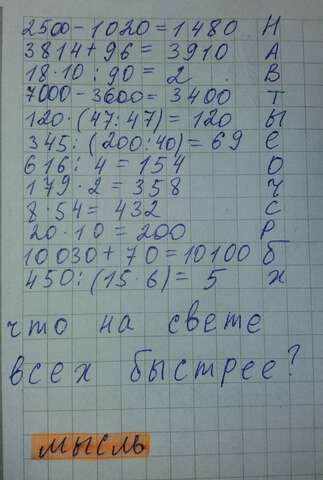 2500 - 1020 = 1480 Н
3814 + 96 = 3910 А
18 · 10 : 90 = 2 В
7000 - 3600 = 3400 Т
120 · (47 : 47) = 120 Ы
345 : (200 : 40) = 69 Е
616 : 4 = 154 О
179 · 2 = 358 Ч
8 · 54 = 432 С
20 · 10 = 200 Р
10 030 + 70 = 10 100 Б
450 : (15 · 6) = 5 Х
что на свете
всех быстрее?
мысль